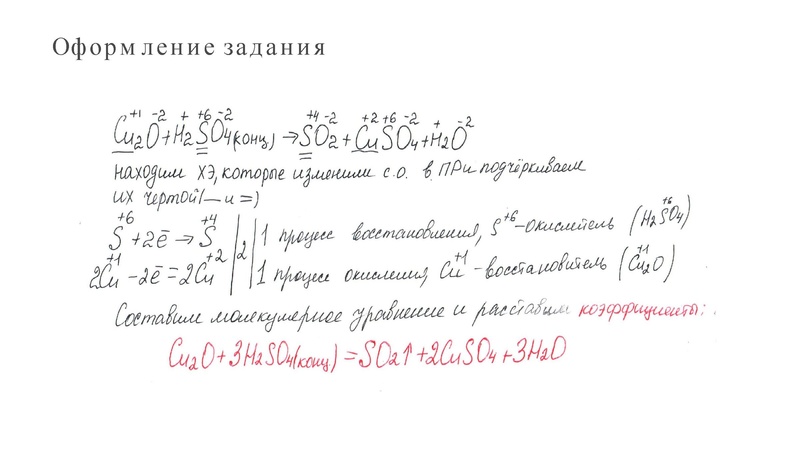 Оформление задания
+1 -2 + +6 -2 +4 -2 +2 +6 -2 + -2
Cu2O+H2SO4(конц) →SO2+CuSO4+H2O
находим ХЭ, которые изменили с.о. в ПРи подчёркиваем
их чертой(— и =)
+6 +4 +6
S +2ē → S |2| 1 процесс восстановления, S+6-окислитель (H2SO4)
+1 +2 +1 +1
2Cu -2ē = 2Cu | | 1 процесс окисления, Cu -восстановитель (Cu2O)
Составим молекулярное уравнение и расставим коэффициенты:
Cu2O+3H2SO4(конц) =SO2↑+2CuSO4+3H2O